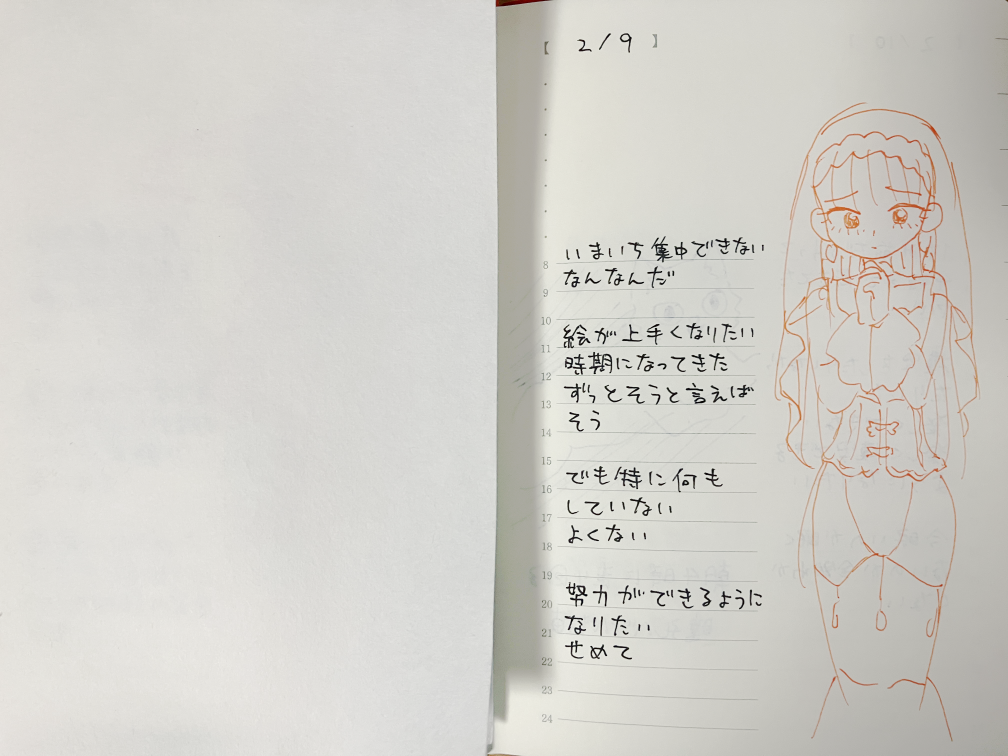 【 2/9 】
いまいち集中できない
なんなんだ
絵が上手くなりたい
時期になってきた
ずっとそうと言えば
そう
でも特に何も
していない
よくない
努力ができるように
なりたい
せめて
8
9
10
11
12
13
14
15
16
17
18
19
20
21
22
23
24